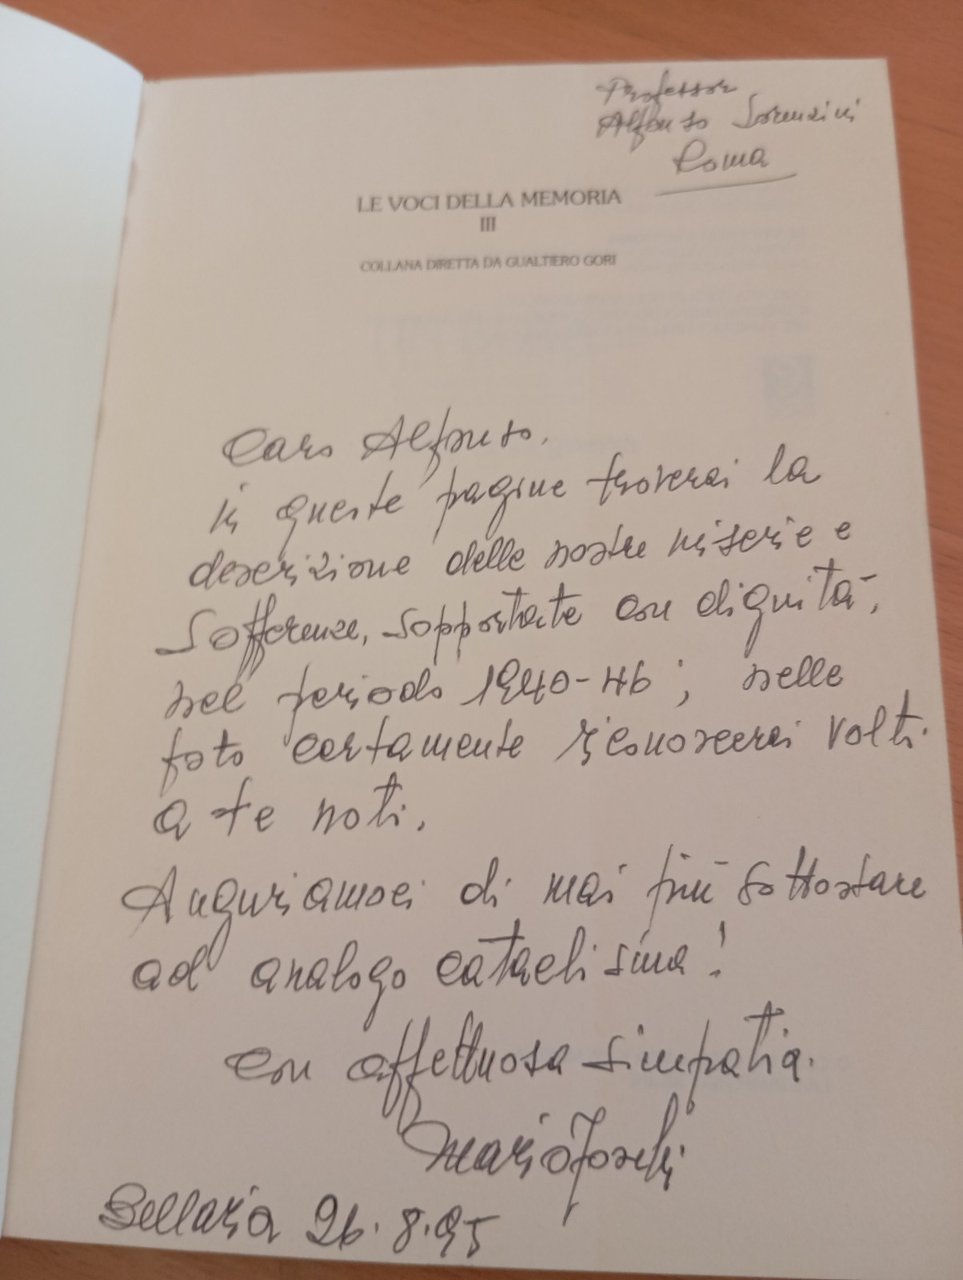 Professor
Alfonso Lorenzini
Roma
LE VOCI DELLA MEMORIA
III
COLLANA DIRETTA DA GUALTIERO GORI
Caro Alfonso,
in queste pagine troverai la
descrizione delle nostre miserie e
sofferenze, sopportate con dignità,
nel periodo 1940-46; nelle
foto certamente riconoscerai volti
a te noti.
Auguriamoci di mai più sottostare
ad analogo cataclisma!
Con affettuosa simpatia.
Mario
Bellaria 26.8.95